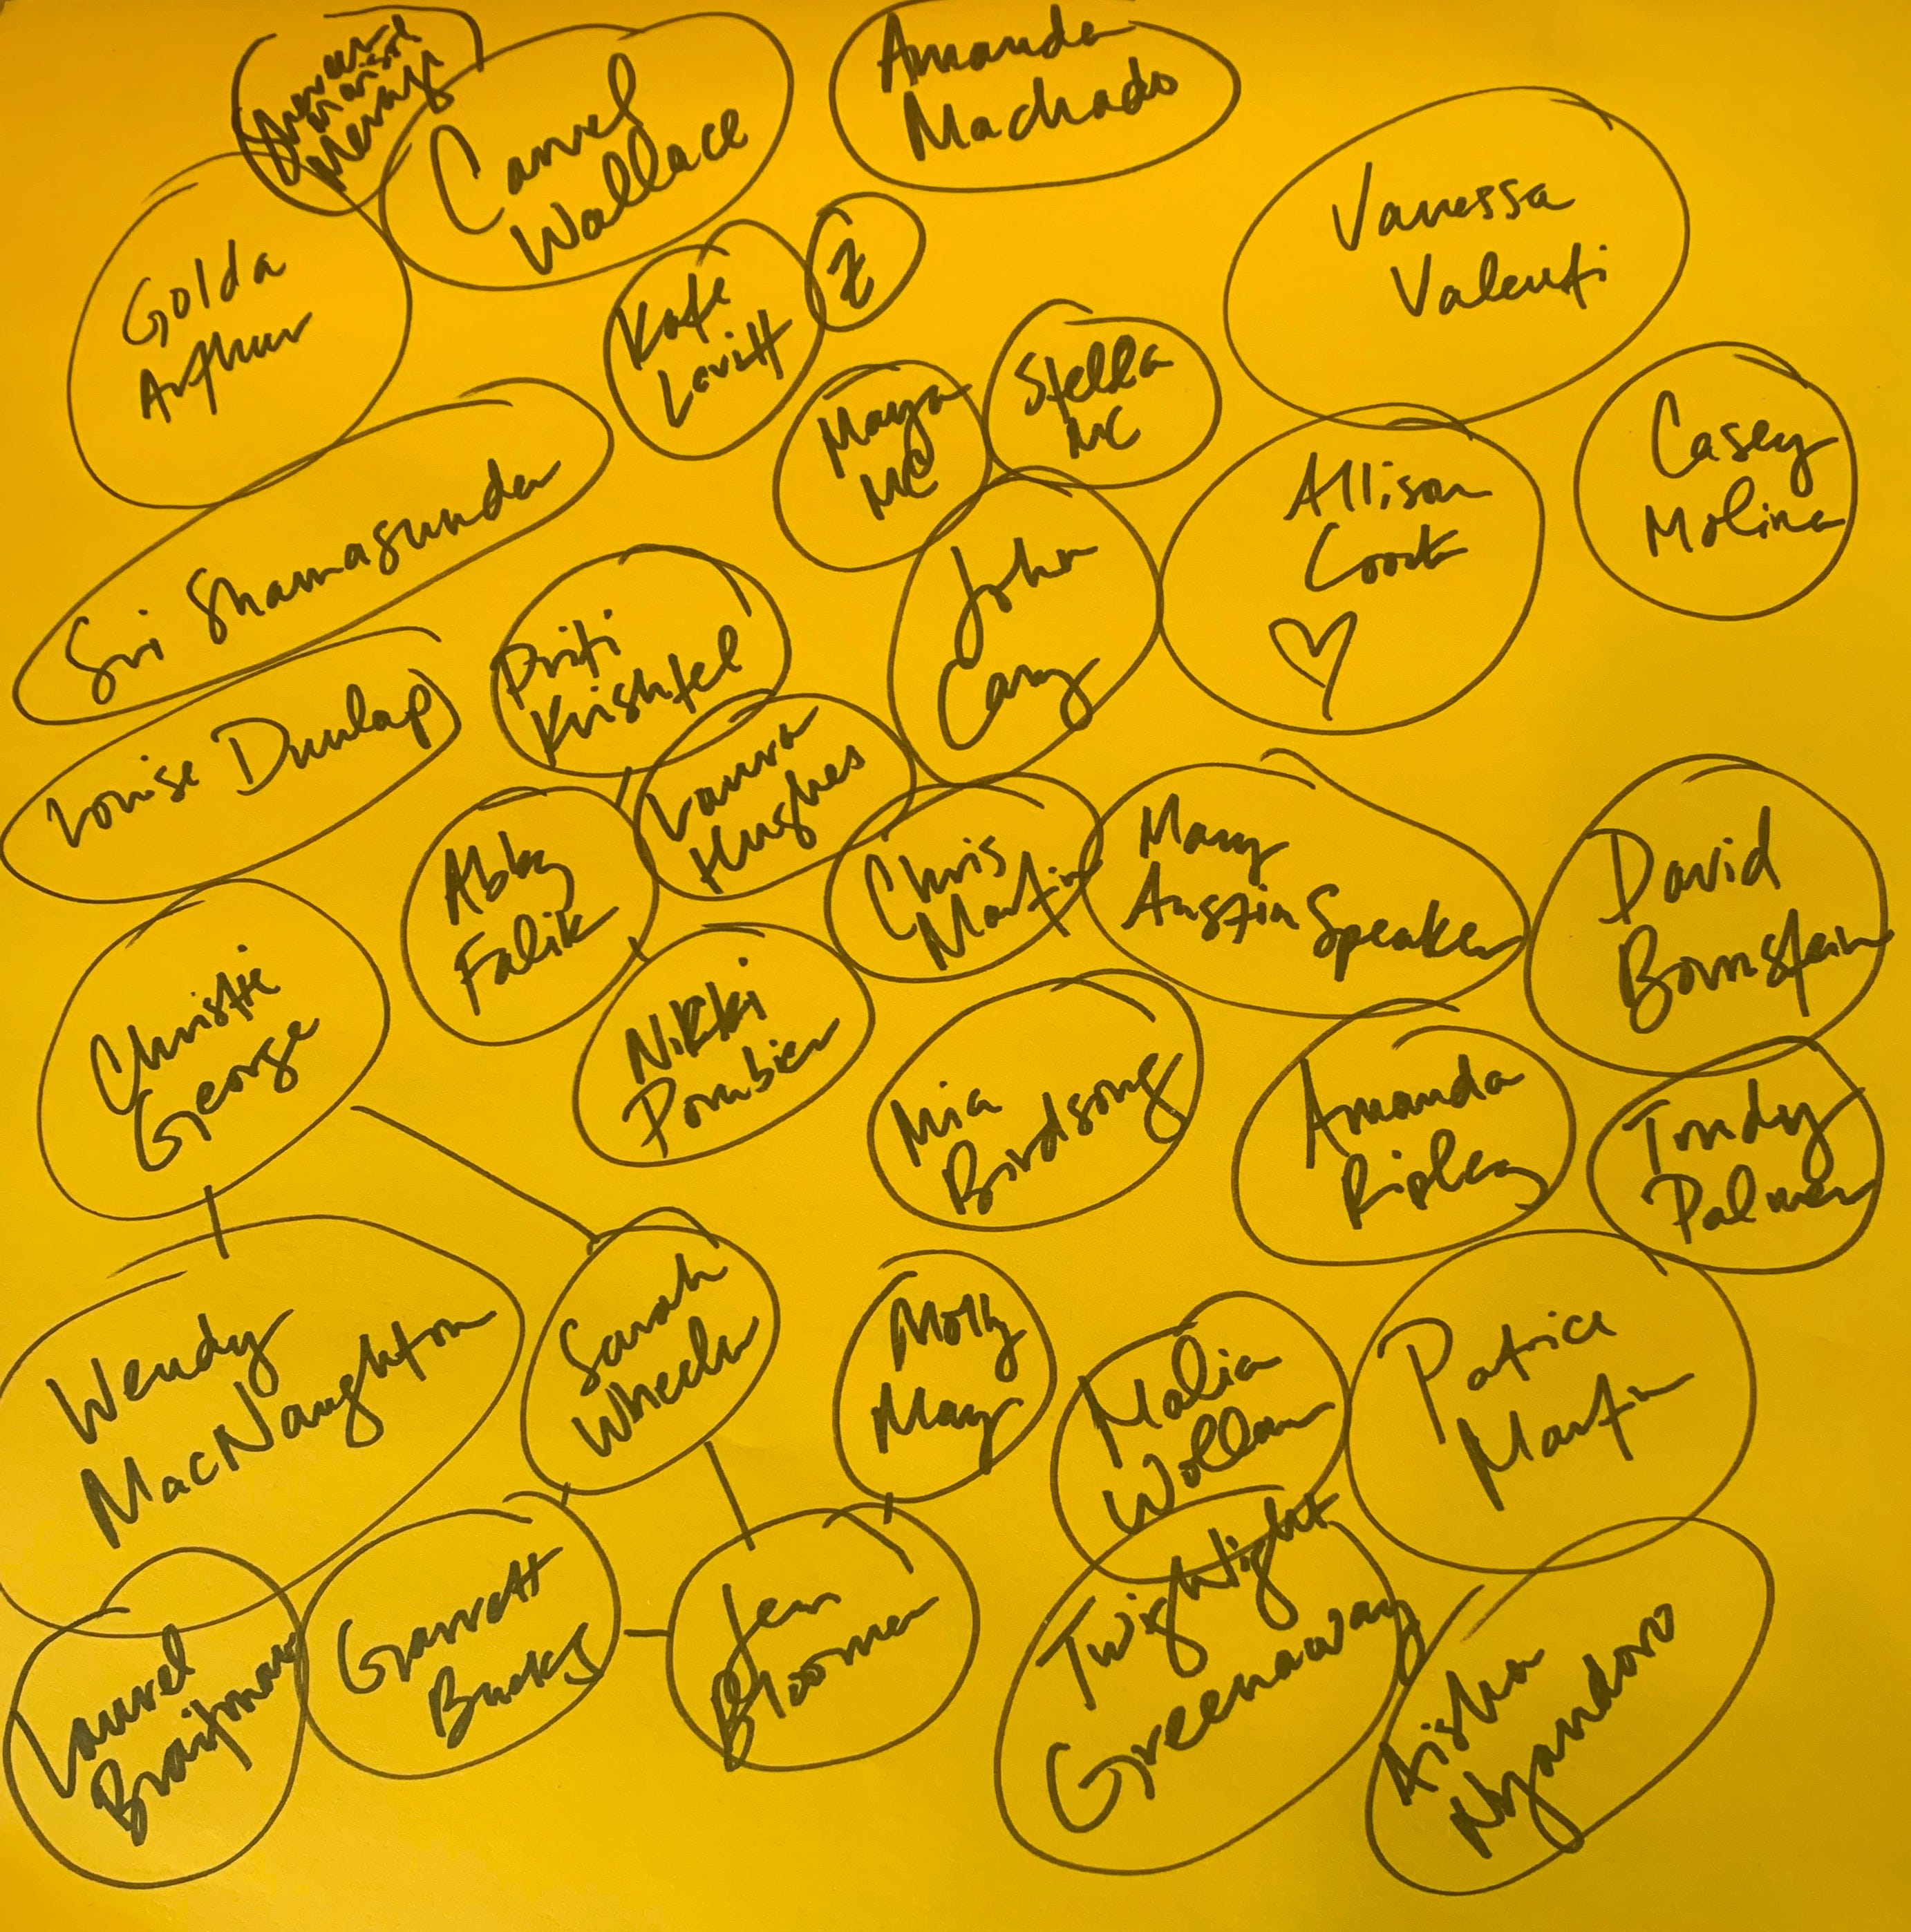 Carvel
Wallace
Amanda
Machado
Golda
Arthur
Kate
Lavitt
Z
Vanessa
Valenti
Maya
MC
Stella
MC
Casey
Molina
Sri Shamasunder
Allison
Cook
John
Cary
Priti
Krishtel
Louise Dunlap
Laura
Hughes
Abby
Falik
Chris
Martin
Mary
Austin Speaker
David
Bornstein
Christie
George
Nikki
Pombier
Mia
Birdsong
Amanda
Ripley
Trudy
Palmer
Wendy
MacNaughton
Sarah
Wheeler
Molly
May
Malia
Wollan
Patrice
Martin
Laurel
Braitman
Garrett
Bucks
Jen
Bloomer
Twilight
Greenaway
Aisha
Nyandoro